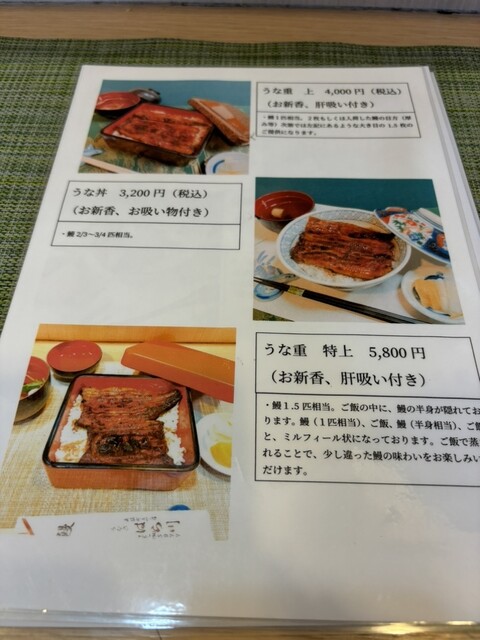 うな重　上　4,000円（税込）
（お新香、肝吸い付き）
・鰻1匹相当。2枚もしくは入荷した鰻の目方（厚
み等）次第では左記にあるような大き目の1.5枚の
ご提供になります。
うな丼　3,200円（税込）
（お新香、お吸い物付き）
・鰻2/3～3/4匹相当。
うな重　特上　5,800円
（お新香、肝吸い付き）
・鰻1.5匹相当。ご飯の中に、鰻の半身が隠れてお
ります。鰻（1匹相当）、ご飯、鰻（半身相当）、ご飯
と、ミルフィール状になっております。ご飯で蒸
れることで、少し違った鰻の味わいをお楽しみい
だけます。
鰻